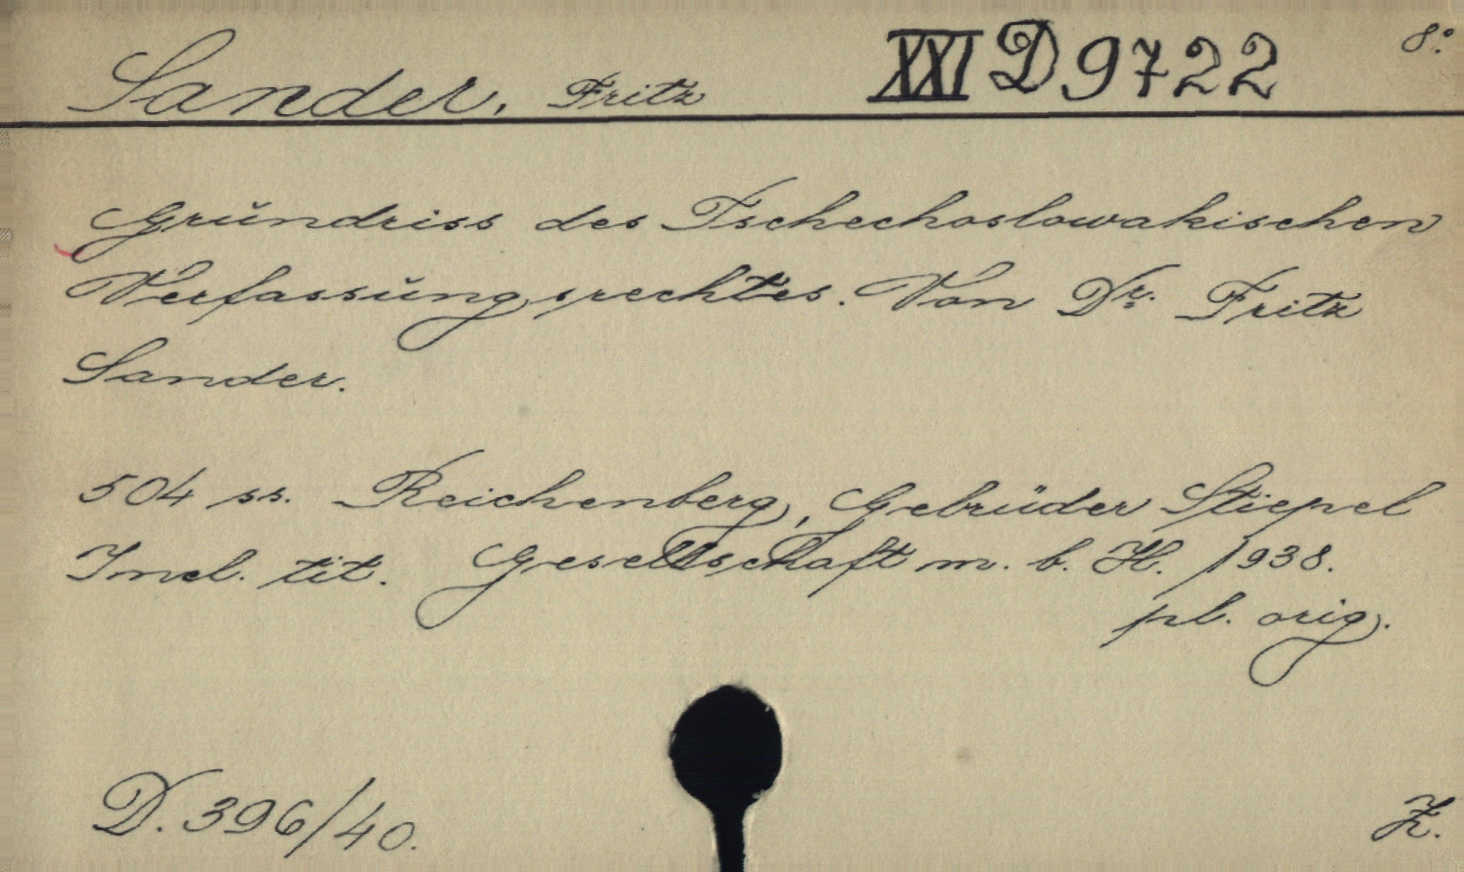 Sander, Fritz XXI D 9722 8°.
Grŭndriss des Tschechoslowakischen
Verfassŭngsrechtes. Von Dr. Fritz
Sander.
504 ss. Reichenberg, Gebrüder Stiepel
Incl. tit. Gesellschaft m. b. H. 1938.
pl. orig.
D. 396/40. Ž.